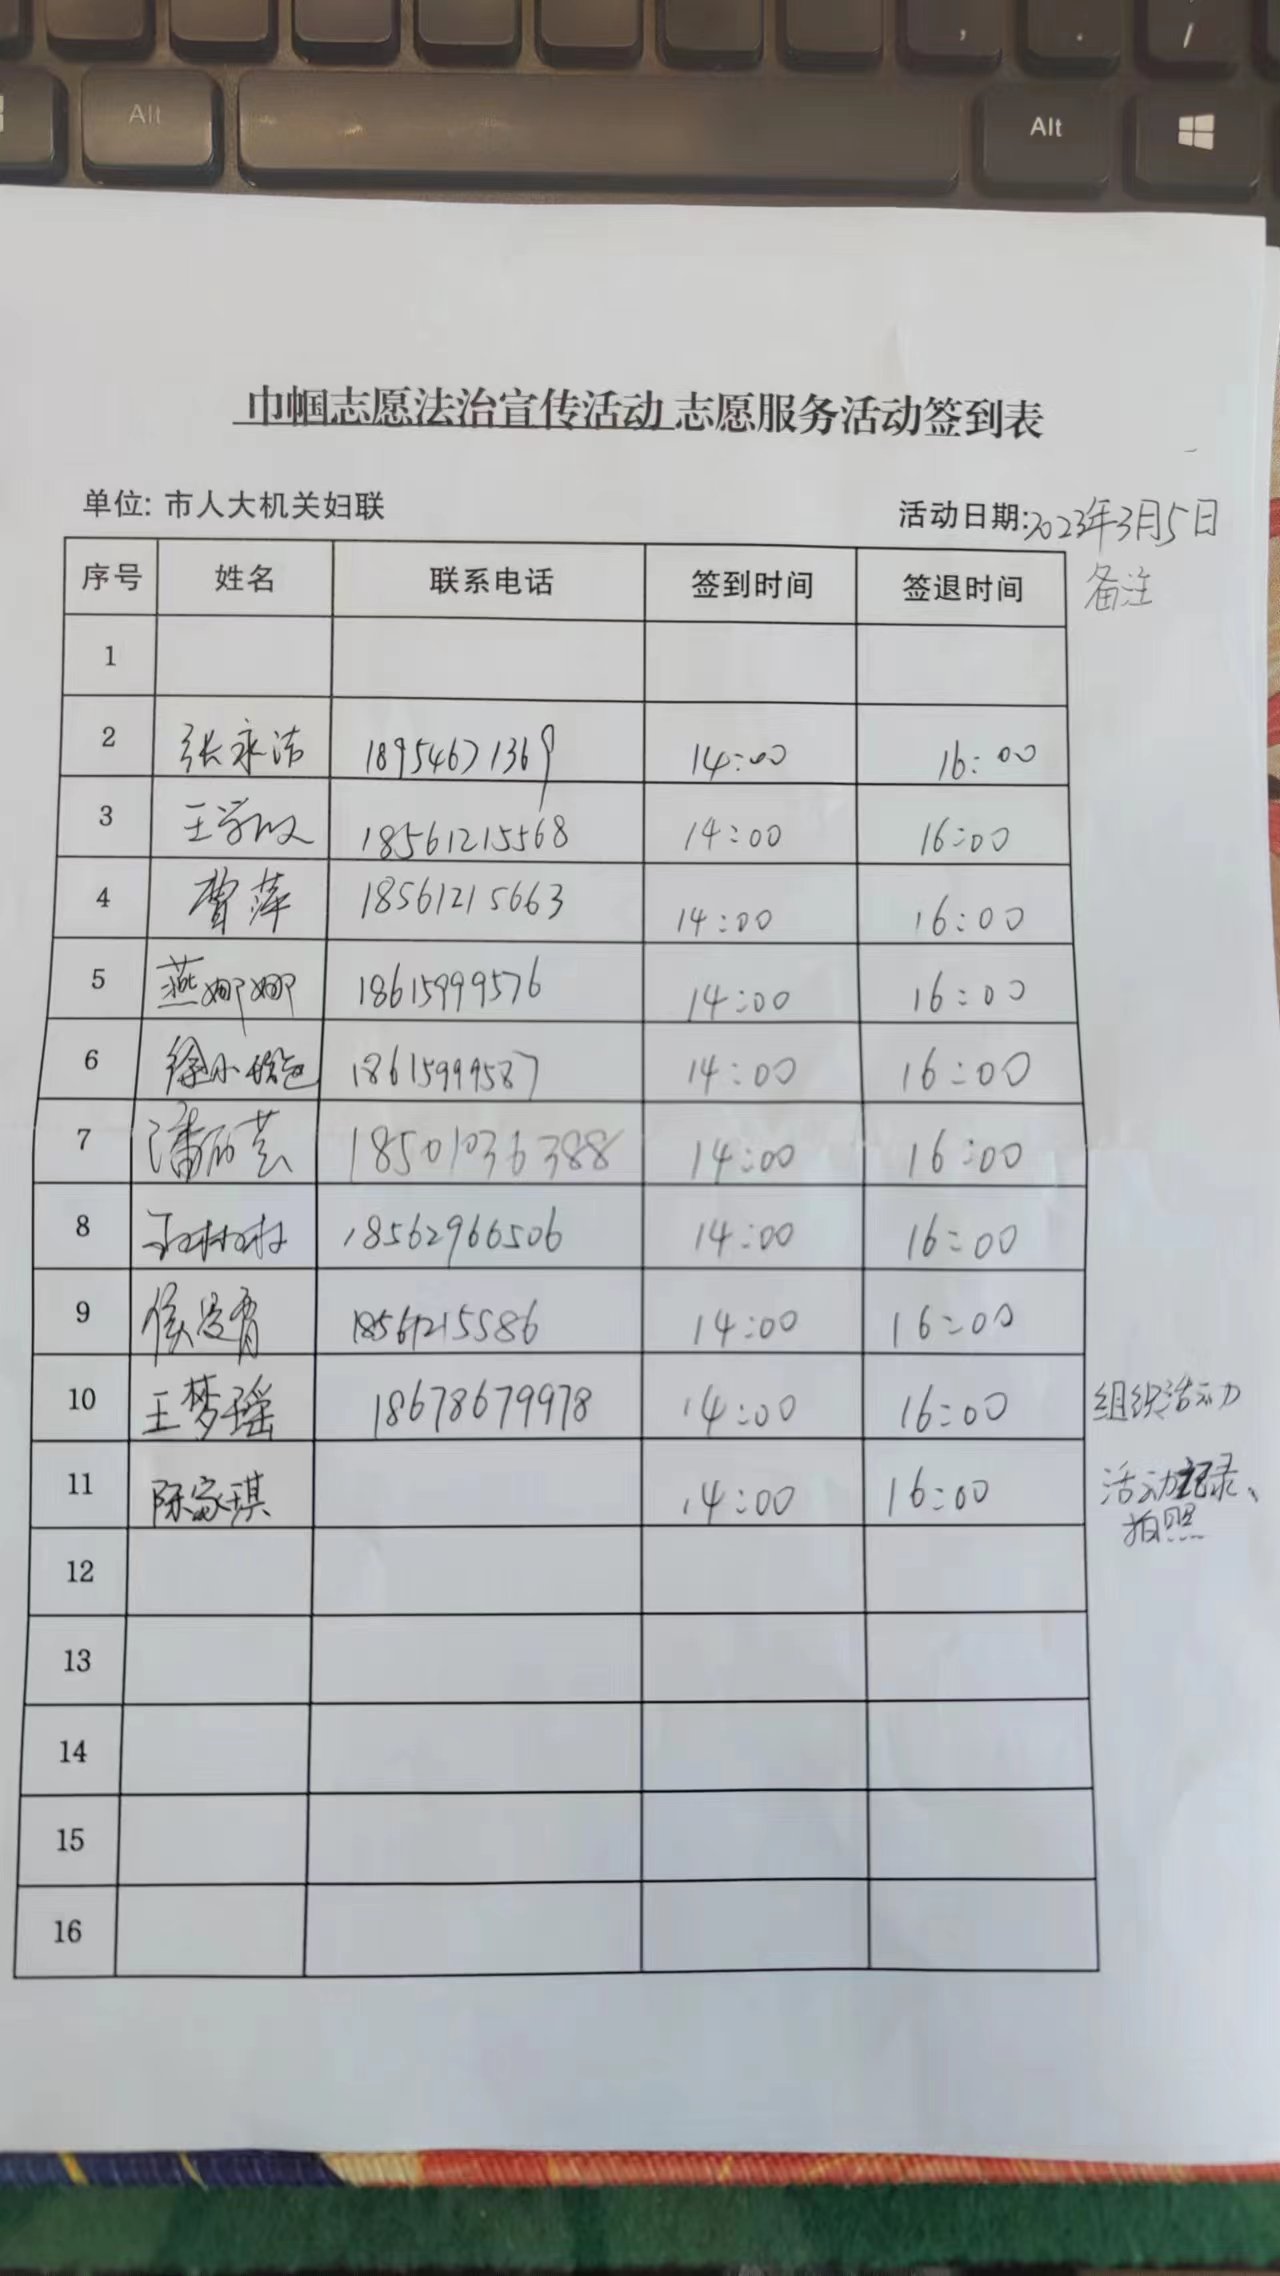 Alt
Alt
, . /
巾帼志愿法治宣传活动 志愿服务活动签到表
单位: 市人大机关妇联 活动日期:2023年3月5日
序号 姓名 联系电话 签到时间 签退时间 备注
1
2 张永洁 18954671369 14:00 16:00
3 18561215568 14:00 16:00
4 曹萍 18561215663 14:00 16:00
5 燕娜娜 18615999576 14:00 16:00
6 徐小 18615999587 14:00 16:00
7 18501036388 14:00 16:00
8 18562966506 14:00 16:00
9 18561215586 14:00 16:00
10 王梦瑶 18678679978 14:00 16:00 组织活动
11 陈家琪 14:00 16:00 活动记录、
拍照
12
13
14
15
16